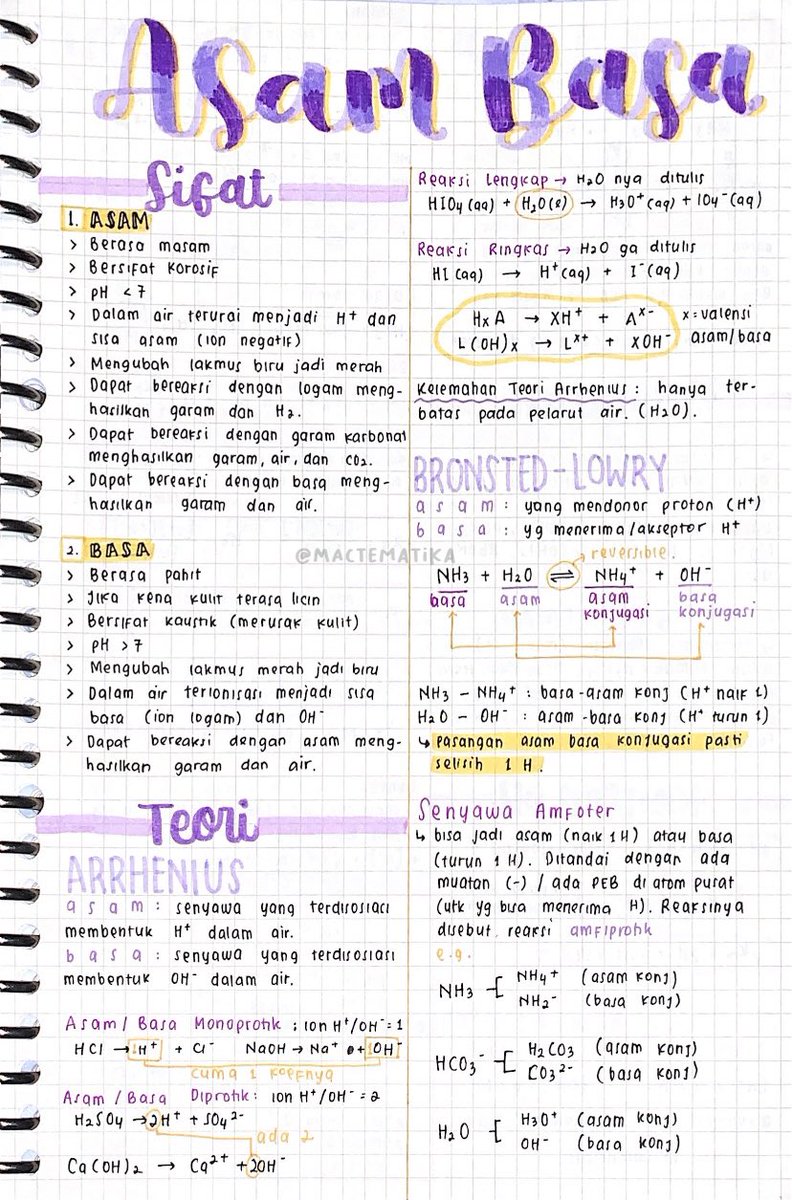 Asam Basa
Sifat
1. ASAM
> Berasa masam
> Bersifat korosif
> pH < 7
> Dalam air terurai menjadi H⁺ dan
sisa asam (ion negatif)
> Mengubah lakmus biru jadi merah
> Dapat bereaksi dengan logam meng-
hasilkan garam dan H₂.
> Dapat bereaksi dengan garam karbonat
menghasilkan garam, air, dan CO₂.
> Dapat bereaksi dengan basa meng-
hasilkan garam dan air.
2. BASA
> Berasa pahit
> Jika kena kulit terasa licin
> Bersifat kaustik (merusak kulit)
> pH > 7
> Mengubah lakmus merah jadi biru
> Dalam air terionisasi menjadi sisa
basa (ion logam) dan OH⁻
> Dapat bereaksi dengan asam meng-
hasilkan garam dan air.
Teori
ARRHENIUS
asam : senyawa yang terdisosiasi
membentuk H⁺ dalam air.
basa : senyawa yang terdisosiasi
membentuk OH⁻ dalam air.
Asam / Basa Monoprotik : ion H⁺/OH⁻ = 1
HCl → 1H⁺ + Cl⁻ NaOH → Na⁺ + 1OH⁻
cuma 1 koefnya
Asam / Basa Diprotik : ion H⁺/OH⁻ = 2
H₂SO₄ → 2H⁺ + SO₄²⁻
ada 2
Ca(OH)₂ → Ca²⁺ + 2OH⁻
Reaksi Lengkap → H₂O nya ditulis
HIO₄ (aq) + H₂O(l) → H₃O⁺(aq) + IO₄⁻(aq)
Reaksi Ringkas → H₂O ga ditulis
HI (aq) → H⁺(aq) + I⁻(aq)
HxA → XH⁺ + Aˣ⁻ x = valensi
L(OH)x → Lˣ⁺ + XOH⁻ asam/basa
Kelemahan Teori Arrhenius : hanya ter-
batas pada pelarut air. (H₂O).
BRONSTED-LOWRY
asam : yang mendonor proton (H⁺)
basa : yg menerima/akseptor H⁺
@MACTEMATIKA
reversible.
NH₃ + H₂O ⇌ NH₄⁺ + OH⁻
basa asam asam basa
konjugasi konjugasi
NH₃ - NH₄⁺ : basa-asam konj (H⁺ naik 1)
H₂O - OH⁻ : asam-basa konj (H⁺ turun 1)
↳ pasangan asam basa konjugasi pasti
selisih 1 H.
Senyawa Amfoter
↳ bisa jadi asam (naik 1H) atau basa
(turun 1 H). Ditandai dengan ada
muatan (-) / ada PEB di atom pusat
(utk yg bisa menerima H). Reaksinya
disebut reaksi amfiprotik
e.g.
NH₃ NH₄⁺ (asam konj)
NH₂⁻ (basa konj)
HCO₃⁻ H₂CO₃ (asam konj)
CO₃²⁻ (basa konj)
H₂O H₃O⁺ (asam konj)
OH⁻ (basa konj)